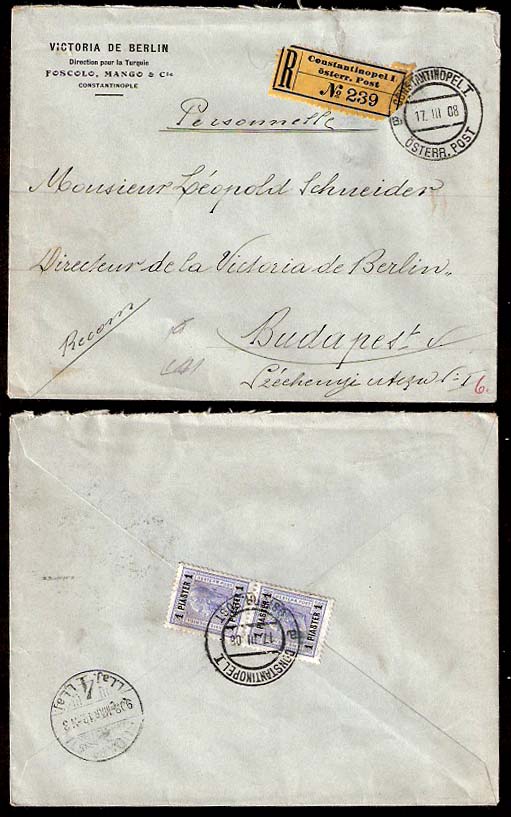 VICTORIA DE BERLIN
Direction pour la Turquie
FOSCOLO, MANGO & Cie
CONSTANTINOPLE
R
Constantinopel I.
österr. Post
No 239
CONSTANTINOPEL I
17. III 08
ÖSTERR. POST
Personnelle
Monsieur Léopold Schneider
Directeur de la Victoria de Berlin
Recom
Budapest
Széchenyi utcza
6.
1 PIASTER 1
1 PIASTER 1
CONSTANTINOPEL I
17. III 08